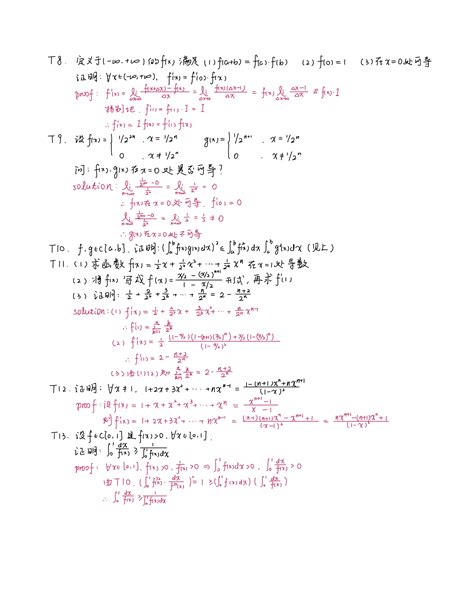 T8. 定义于(-∞,+∞)的f(x)满足 (1) f(a+b)=f(a)·f(b) (2) f(0)=1 (3)在x=0处可导
证明: ∀x∈(-∞,+∞), f'(x)=f'(0)·f(x)
proof: f'(x)=lim_{Δx→0} (f(x+Δx)-f(x))/Δx = lim_{Δx→0} f(x)(f(Δx)-1)/Δx = f(x) lim_{Δx→0} (f(Δx)-1)/Δx ≜ f(x)·I
特别地, f'(0)=f(0)·I=I
∴ f'(x)=I f(x)=f'(0)f(x)
T9. 设f(x)={1/2^{2n}, x=1/2^n g(x)={1/2^{n+1}, x=1/2^n
0, x≠1/2^n 0, x≠1/2^n
问: f(x), g(x)在x=0处是否可导?
solution:
∴ f(x)在x=0处可导, f'(0)=0
∴ g(x)在x=0处不可导
T10. f, g∈C[a,b], 证明: (∫_a^b f(x)g(x)dx)² ≤ ∫_a^b f²(x)dx ∫_a^b g²(x)dx (见上)
T11. (1) 求函数f(x)=1/2 x+1/2² x²+…+1/2^n x^n 在x=1处导数
(2) 将f(x)写成f(x)=(x/2-(x/2)^{n+1})/(1-x/2)形式, 再求f'(1)
(3) 证明: 1/2+2/2²+3/2³+…+n/2^n=2-(n+2)/2^n
solution: (1) f'(x)=1/2+2/2² x+3/2³ x²+…+n/2^n x^{n-1}
∴ f'(1)=Σ_{k=1}^n k/2^k
(2)
∴ f'(1)=2-(n+2)/2^n
(3) 由(1)(2)知 Σ_{k=1}^n k/2^k=2-(n+2)/2^n
T12. 证明: ∀x≠1, 1+2x+3x²+…+nx^{n-1}=(1-(n+1)x^n+nx^{n+1})/(1-x)²
proof: 设f(x)=1+x+x²+x³+…+x^n=(x^{n+1}-1)/(x-1)
则f'(x)=1+2x+3x²+…+nx^{n-1}=((n+1)x^n(x-1)-x^{n+1}+1)/(x-1)²=(nx^{n+1}-(n+1)x^n+1)/(1-x)²
T13. 设f∈C[0,1]且f(x)>0, ∀x∈[0,1].
证明: ∫_0^1 dx/f(x) ≥ 1/∫_0^1 f(x)dx
proof: ∀x∈[0,1], f(x)>0, 1/f(x)>0 ⇒ ∫_0^1 f(x)dx>0, ∫_0^1 dx/f(x)>0
由T10,
∴ ∫_0^1 dx/f(x) ≥ 1/∫_0^1 f(x)dx